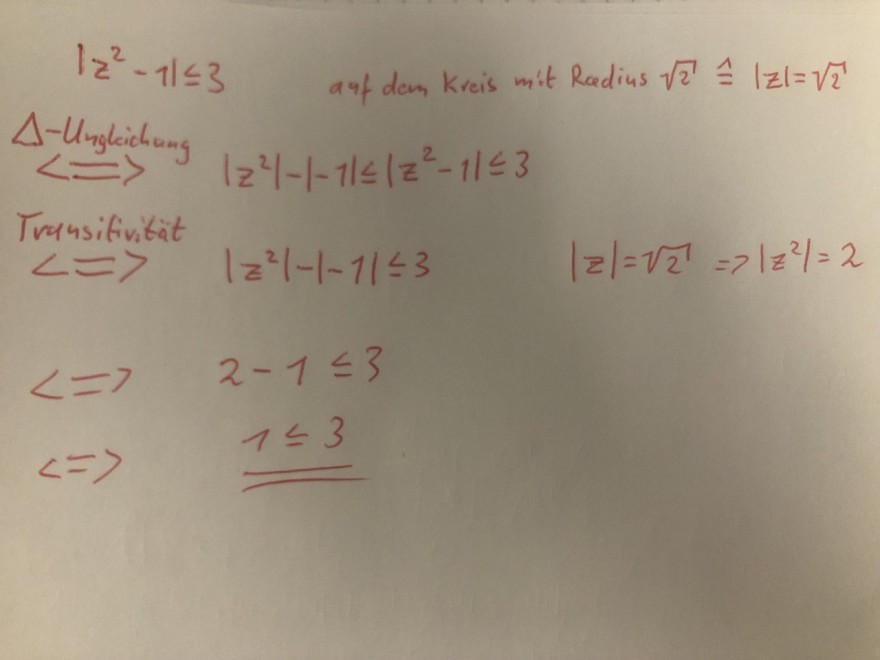 |z² - 1| ≤ 3 auf dem Kreis mit Radius √2 ≙ |z| = √2
Δ-Ungleichung
<=> |z²| - |-1| ≤ |z² - 1| ≤ 3
Transitivität
<=> |z²| - |-1| ≤ 3 |z| = √2 => |z²| = 2
<=> 2 - 1 ≤ 3
<=> 1 ≤ 3